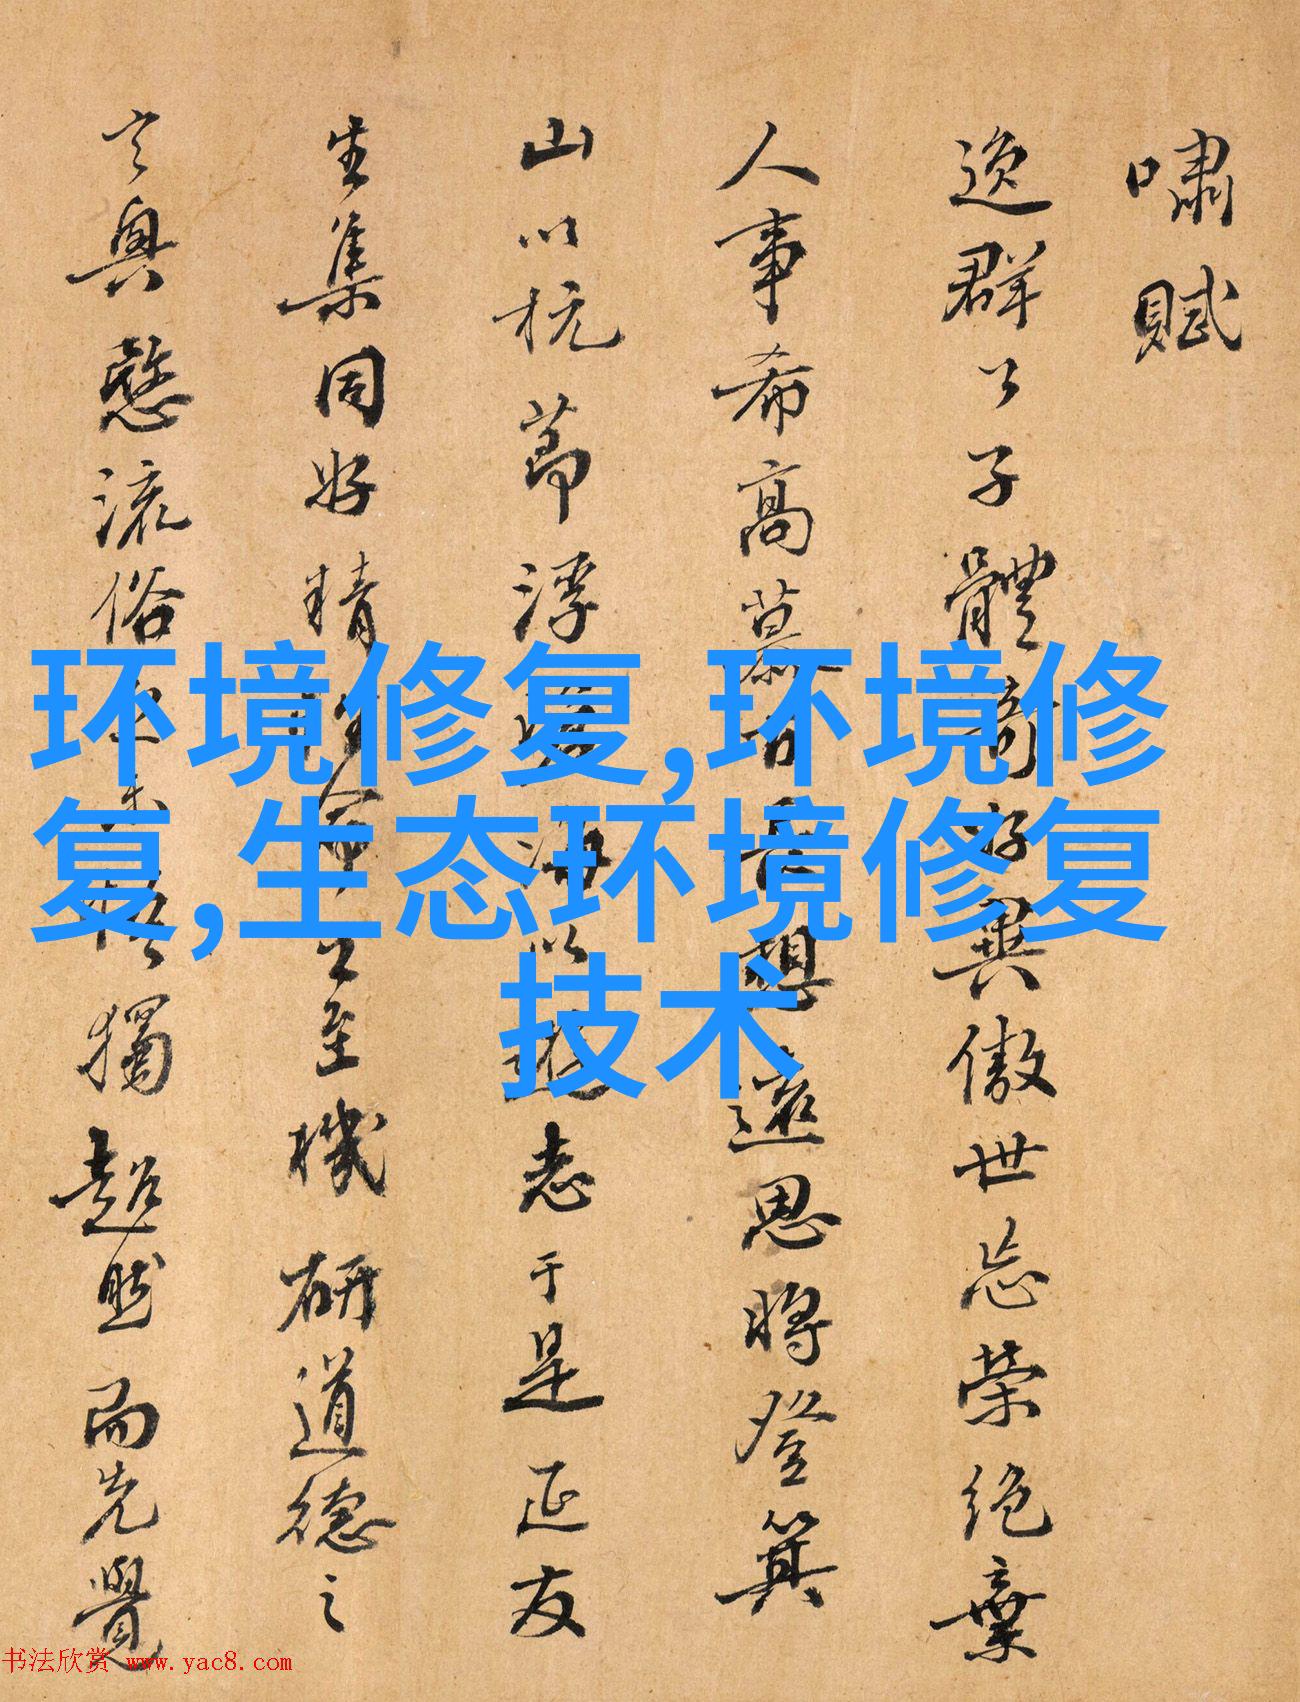 嘯賦
逸群公子體奇好異傲世忘榮絕棄
人事希高慕古長想遠思將登箕
山以抗節浮滄海以遊志于是延友
生集同好精性命之至機研道德之
玄奧愍流俗之未悟獨超然而先覺
环境修复,环境修
复,生态环境修复
技术
书法欣赏 www.yac8.com